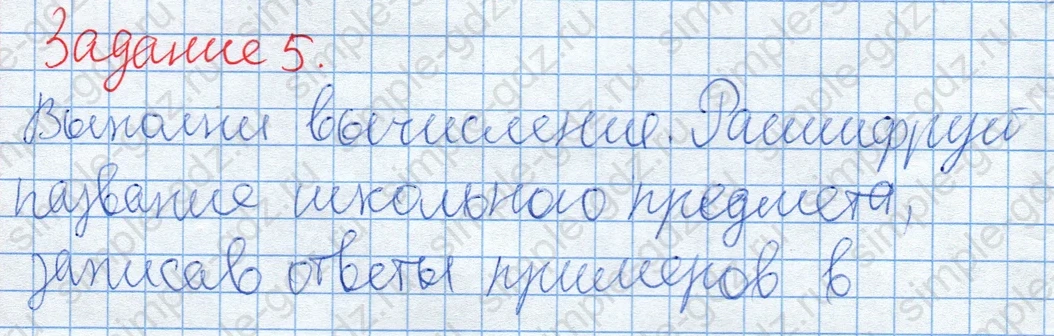 Задание 5.
Выполни вычисление. Расшифруй
название школьного предмета,
записав ответы примеров в